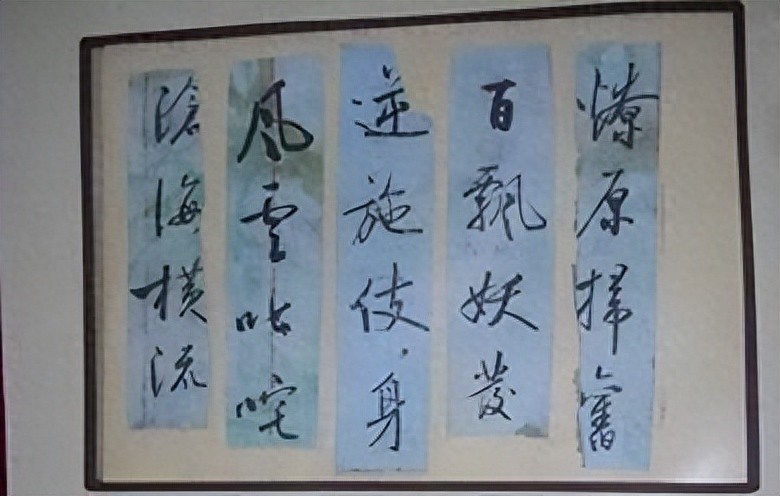 燎原掃舊
百飄妖發
逆施伎，身
風雲叱咤
滄海橫流